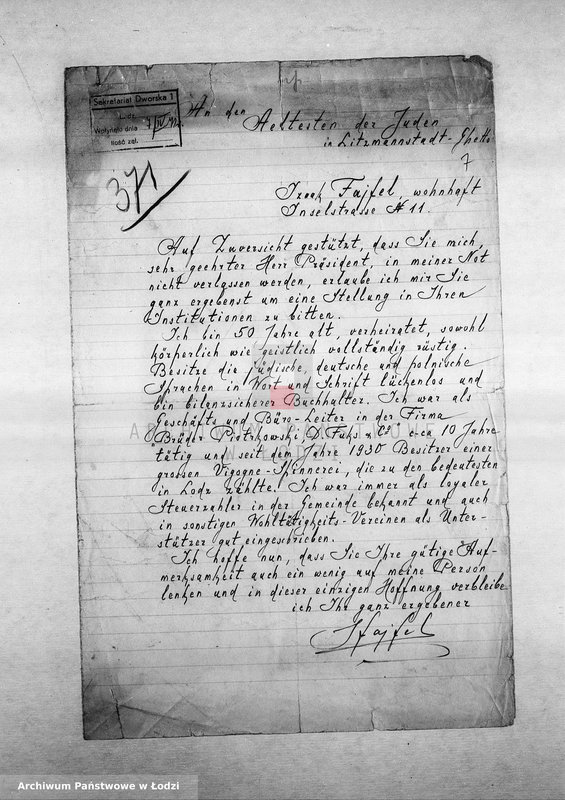 Sekretariat Dworska 1
Łódź,
Wpłynęło dnia 7/IV 41
Ilość zał.
An den
Aeltesten der Juden
in Litzmannstadt-Ghetto
7
371
Fajfel, wohnhaft
Inselstrasse # 11.
Auf Zuversicht gestützt, dass Sie mich,
sehr geehrter Herr Präsident, in meiner Not
nicht verlassen werden, erlaube ich mir Sie
ganz ergebenst um eine Stellung in Ihren
Institutionen zu bitten.
Ich bin 50 Jahre alt, verheiratet, sowohl
körperlich wie geistlich vollständig rüstig.
Besitze die jüdische, deutsche und polnische
Sprachen in Wort und Schrift lückenlos und
bin bilanzsicherer Buchhalter. Ich war als
Geschäfts und Büro-Leiter in der Firma
Brüder Piotrkowski, D. Fuks & Co c-ca 10 Jahre
tätig und seit dem Jahre 1930 Besitzer einer
grossen Vigogne-Spinnerei, die zu den bedeutesten
in Lodz zählte. Ich war immer als loyaler
Steuerzahler in der Gemeinde bekannt und auch
in sonstigen Wohltätigkeits-Vereinen als Unter-
stützer gut eingeschrieben.
Ich hoffe nun, dass Sie Ihre gütige Auf-
merksamkeit auch ein wenig auf meine Person
lenken und in dieser einzigen Hoffnung verbleibe
ich Ihr ganz ergebener
Ifajfel
ARCHIWUM PAŃSTWOWE
W ŁODZI
Archiwum Państwowe w Łodzi